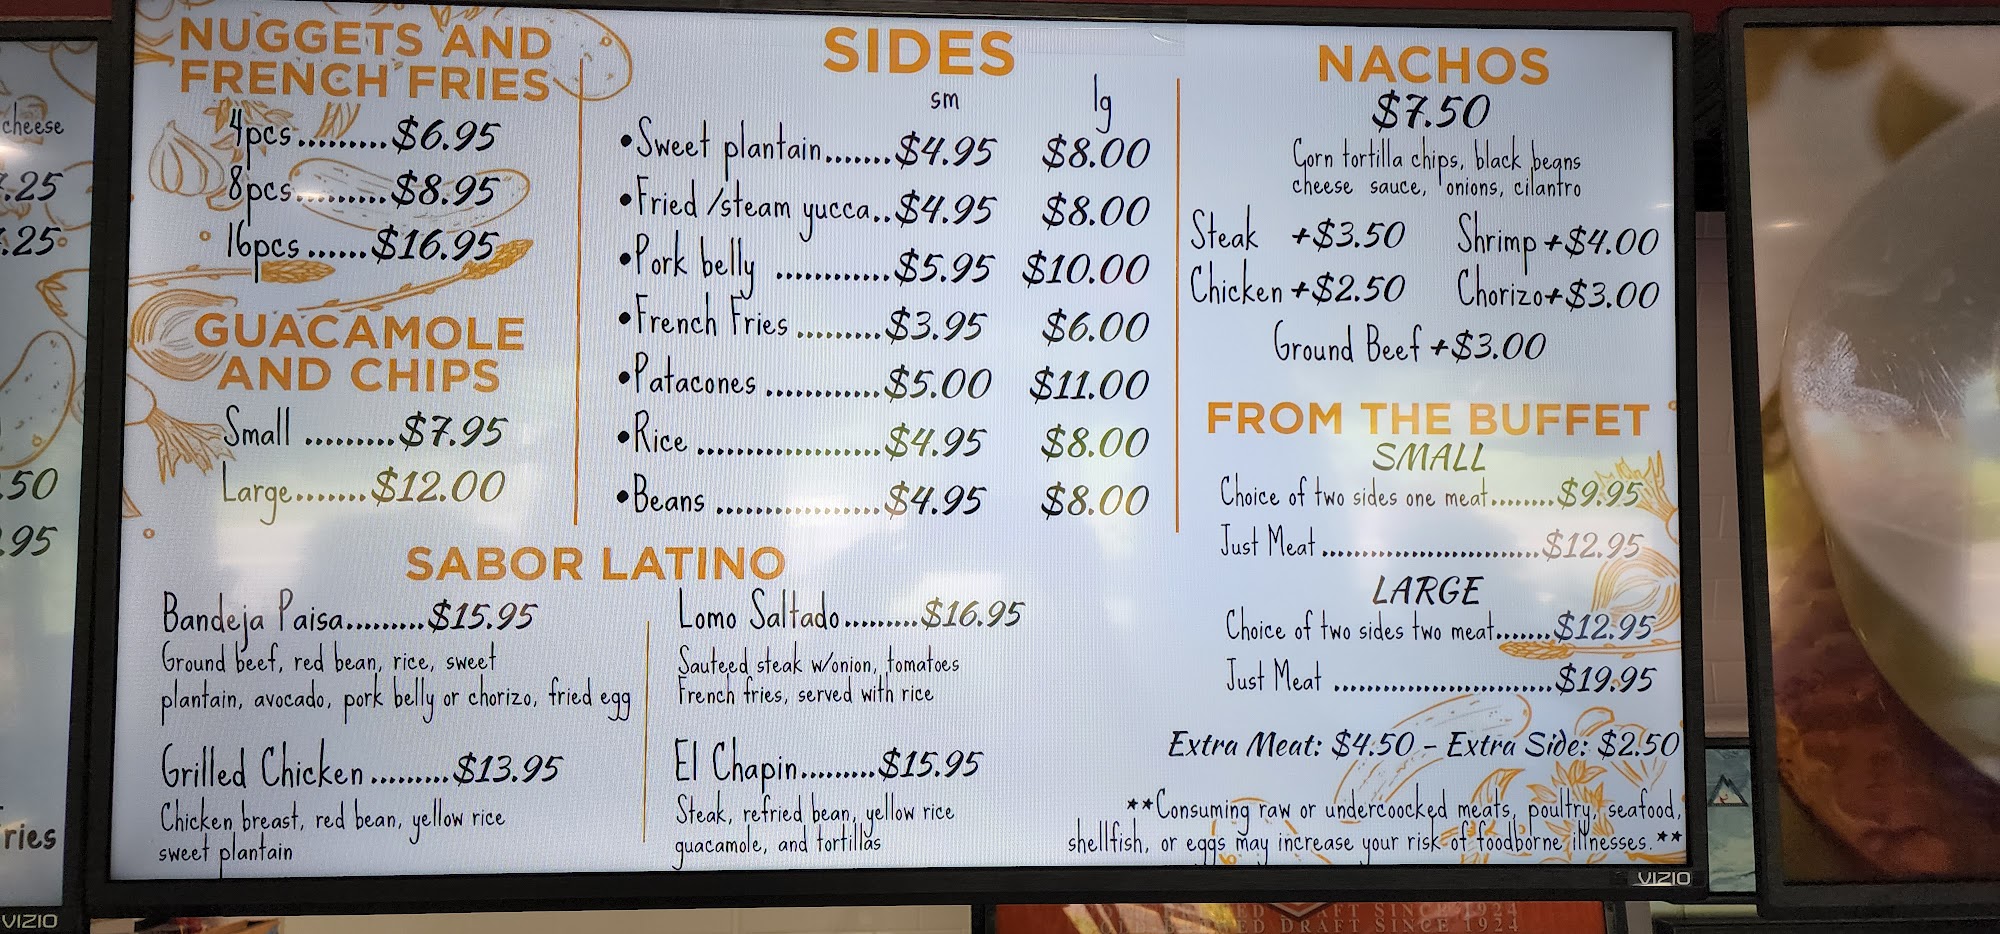 cheese
.25
.25
.50
.95
ries
VIZIO
NUGGETS AND
FRENCH FRIES
4pcs.........$6.95
8pcs..........$8.95
16pcs.......$16.95
GUACAMOLE
AND CHIPS
Small .........$7.95
Large........$12.00
SIDES
sm lg
•Sweet plantain.......$4.95 $8.00
•Fried /steam yucca..$4.95 $8.00
•Pork belly ............$5.95 $10.00
•French Fries.........$3.95 $6.00
•Patacones ............$5.00 $11.00
•Rice....................$4.95 $8.00
•Beans .................$4.95 $8.00
NACHOS
$7.50
Corn tortilla chips, black beans
cheese sauce, onions, cilantro
Steak +$3.50 Shrimp+$4.00
Chicken+$2.50 Chorizo+$3.00
Ground Beef+$3.00
FROM THE BUFFET
SMALL
Choice of two sides one meat........$9.95
Just Meat...........................$12.95
LARGE
Choice of two sides two meat.......$12.95
Just Meat ...........................$19.95
Extra Meat: $4.50 - Extra Side: $2.50
**Consuming raw or undercoocked meats, poultry, seafood,
shellfish, or eggs may increase your risk of foodborne illnesses.**
SABOR LATINO
Bandeja Paisa.........$15.95
Ground beef, red bean, rice, sweet
plantain, avocado, pork belly or chorizo, fried egg
Grilled Chicken.........$13.95
Chicken breast, red bean, yellow rice
sweet plantain
Lomo Saltado.........$16.95
Sauteed steak w/onion, tomatoes
French fries, served with rice
El Chapin.........$15.95
Steak, refried bean, yellow rice
guacamole, and tortillas
VIZIO
DRAFT SINCE 1924